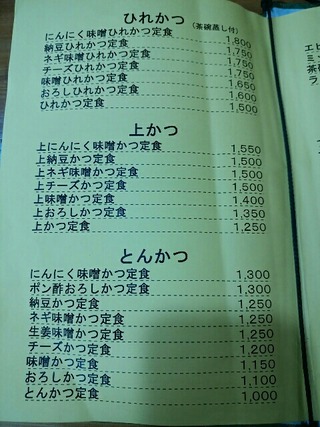 ひれかつ（茶碗蒸し付）
にんにく味噌ひれかつ定食 1,800
納豆ひれかつ定食 1,750
ネギ味噌ひれかつ定食 1,750
チーズひれかつ定食 1,750
味噌ひれかつ定食 1,650
おろしひれかつ定食 1,600
ひれかつ定食 1,500
上かつ
上にんにく味噌かつ定食 1,550
上納豆かつ定食 1,500
上ネギ味噌かつ定食 1,500
上チーズかつ定食 1,500
上味噌かつ定食 1,400
上おろしかつ定食 1,350
上かつ定食 1,250
とんかつ
にんにく味噌かつ定食 1,300
ポン酢おろしかつ定食 1,300
納豆かつ定食 1,250
ネギ味噌かつ定食 1,250
生姜味噌かつ定食 1,250
チーズかつ定食 1,200
味噌かつ定食 1,150
おろしかつ定食 1,100
とんかつ定食 1,000
エビ
ミ
茶碗
ラ